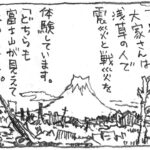 大家さんは
浅草の人で
震災と戦災を
体験しています。
「どちらも
富士山が見えて